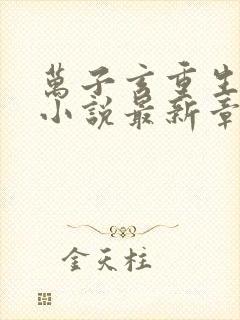 萬子玄重生
小說最新章
金天柱